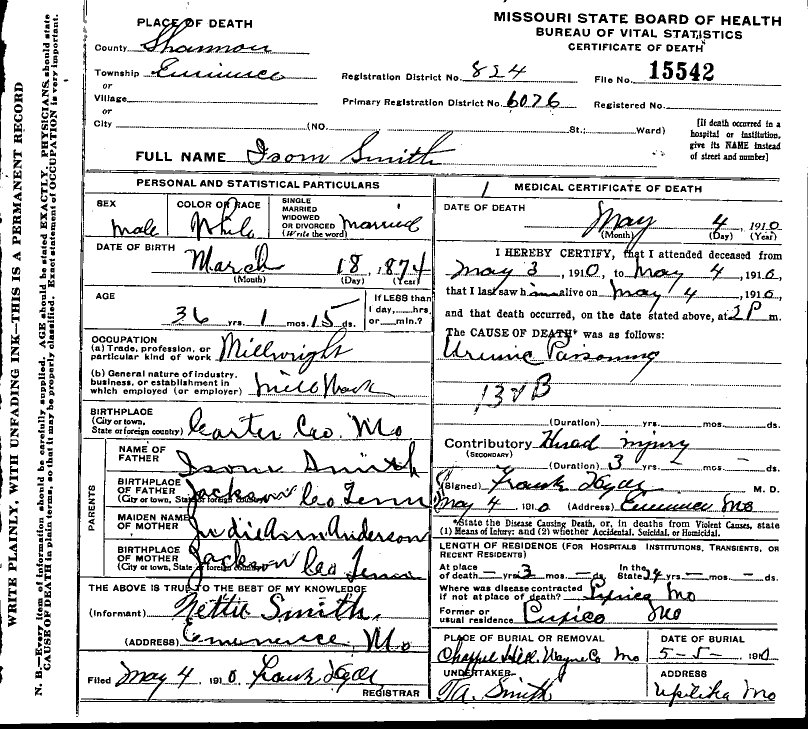 WRITE PLAINLY, WITH UNFADING INK—THIS IS A PERMANENT RECORD
N. B.—Every item of information should be carefully supplied. AGE should be stated EXACTLY. PHYSICIANS should state
CAUSE OF DEATH in plain terms, so that it may be properly classified. Exact statement of OCCUPATION is very important.
MISSOURI STATE BOARD OF HEALTH
BUREAU OF VITAL STATISTICS
CERTIFICATE OF DEATH
PLACE OF DEATH
County Shannon
Township Eminence
or
Village
or
City (NO. St.; Ward)
Registration District No. 824 File No. 15542
Primary Registration District No. 6076 Registered No.
[If death occurred in a
hospital or institution,
give its NAME instead
of street and number]
FULL NAME Isom Smith
PERSONAL AND STATISTICAL PARTICULARS
SEX male
COLOR OR RACE White
SINGLE
MARRIED
WIDOWED
OR DIVORCED
(Write the word) Married
DATE OF BIRTH
March 18, 1874
(Month) (Day) (Year)
AGE
36 yrs. 1 mos. 15 ds.
If LESS than
1 day,....hrs.
or....min.?
OCCUPATION
(a) Trade, profession, or
particular kind of work Millwright
(b) General nature of industry,
business, or establishment in
which employed (or employer) Mill Work
BIRTHPLACE
(City or town,
State or foreign country) Carter Co. Mo
PARENTS
NAME OF
FATHER Isom Smith
BIRTHPLACE
OF FATHER
(City or town, State or foreign country) Jackson Co Tenn
MAIDEN NAME
OF MOTHER Judie Ann Anderson
BIRTHPLACE
OF MOTHER
(City or town, State or foreign country) Jackson Co Tenn
THE ABOVE IS TRUE TO THE BEST OF MY KNOWLEDGE
(Informant) Nettie Smith
(ADDRESS) Eminence, Mo
Filed May 4 1910 Frank
REGISTRAR
MEDICAL CERTIFICATE OF DEATH
DATE OF DEATH
May 4, 1910
(Month) (Day) (Year)
I HEREBY CERTIFY, that I attended deceased from
May 3, 1910, to May 4, 1910,
that I last saw him alive on May 4, 1910,
and that death occurred, on the date stated above, at 2 P m.
The CAUSE OF DEATH* was as follows:
Uremic Poisoning
(Duration) yrs. mos. ds.
Contributory Head injury
(SECONDARY)
(Duration) 3 yrs. – mos. – ds.
(Signed) Frank M. D.
May 4 1910 (Address) Eminence Mo
*State the Disease Causing Death, or, in deaths from Violent Causes, state
(1) Means of Injury; and (2) whether Accidental, Suicidal, or Homicidal.
LENGTH OF RESIDENCE (FOR HOSPITALS INSTITUTIONS, TRANSIENTS, OR
RECENT RESIDENTS)
At place
of death – yrs. 3 mos. – ds. In the
State 24 yrs. – mos. – ds.
Where was disease contracted
if not at place of death? Mo
Former or
usual residence Mo
PLACE OF BURIAL OR REMOVAL
Chappel Hill, Wayne Co Mo
DATE OF BURIAL
5–5– 1910
UNDERTAKER
T.A. Smith
ADDRESS
Mo